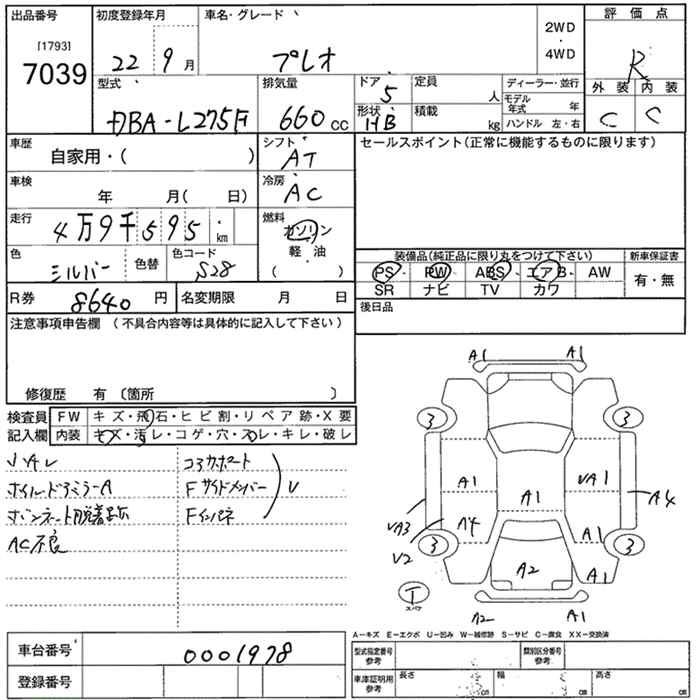 出品番号 初度登録年月 車名・グレード 2WD・4WD 評価点
[1793]
7039 22 9月 プレオ R
型式 排気量 ドア 5 定員 人 ディーラー・並行 外装 内装
DBA-L275F 660cc 形状 HB 積載 kg モデル年式 年 C C
ハンドル 左・右
車歴 自家用・( ) シフト AT セールスポイント(正常に機能するものに限ります)
車検 年 月( 日) 冷房 AC
走行 4万9千595km 燃料 ガソリン
軽・油
( )
色 シルバー 色替 色コード S28
装備品(純正品に限り丸をつけて下さい) 新車保証書
PS PW ABS エアB AW 有・無
SR ナビ TV カワ
R券 8640円 名変期限 月 日 後日品
注意事項申告欄(不具合内容等は具体的に記入して下さい)
修復歴 有〔箇所 〕
検査員記入欄 FW キズ・飛石・ヒビ割・リペア跡・X要
内装 キズ・汚レ・コゲ・穴・スレ・キレ・破レ
小キレ コアサポート
ホイルドアミラーA Fサイドメンバー V
ボンネット脱着 Fインパネ
AC不良
A1 A1
3 3
A1 A1 VA1 A4
VA3 A4 A1
V2 3 3
A2 A1
I
スペア
A2 A1
A-キズ E-エクボ U-凹み W-補修跡 S-サビ C-腐食 XX-交換済
車台番号 0001978
型式指定番号 参考 類別区分番号 参考
登録番号
車庫証明用 参考 長さ cm 幅 cm 高さ cm